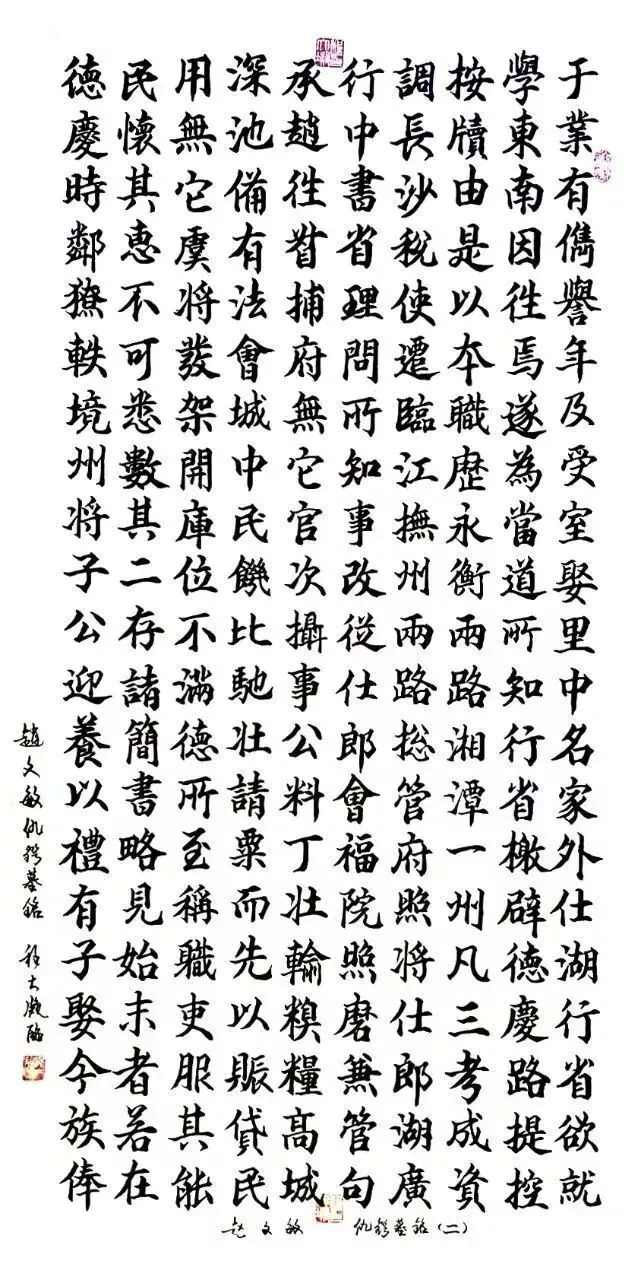 于業有儁譽年及受室娶里中名家外仕湖行省欲就
學東南因往焉遂為當道所知行省檄辟德慶路提控
按牘由是以本職歷永衡兩路湘潭一州凡三考成資
調長沙稅使遷臨江撫州兩路總管府照將仕郎湖廣
行中書省理問所知事改從仕郎會福院照磨兼管句
承趙往督捕府無它官次攝事公料丁壯輸糗糧高城
深池備有法會城中民饑比馳壯請粟而先以賑貸民
用無它虞將發架開庫位不滿德所至稱職吏服其能
民懷其惠不可悉數其二存諸簡書略見始末者若在
德慶時鄰獠軼境州將子公迎養以禮有子娶今族俸
趙文敏仇鍔墓銘 程大臨
赵文敏 仇鍔墓銘(二)